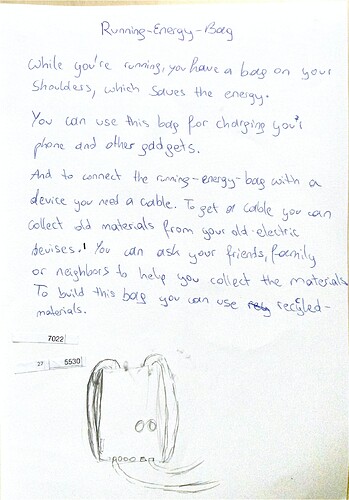 Running-Energy-Bag
While you're running, you have a bag on your
Shoulders, which saves the energy.
You can use this bag for charging your
phone and other gadgets.
And to connect the running-energy-bag with a
device you need a cable. To get a cable you can
collect old materials from your old-electric
devises. You can ask your friends, family
or neighbors to help you collect the materials
To build this bag you can use recycled-
materials.
7022
27 5530